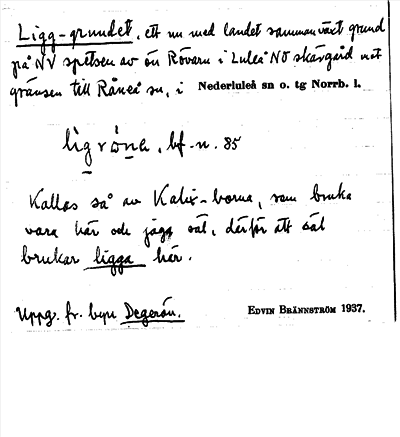 Ligg-grundet, ett nu med landet sammanväxt grund
på NV spetsen av ön Rövarn i Luleå NO skärgård nät
gränsen till Råneå sn, i Nederluleå sn o. tg Norrb. l.
bf. n. 85
Kallas så av Kalix-borna, som bruka
vara här och jaga säl, därför att säl
brukar ligga här.
Uppg. fr. byn Degerön.
EDVIN BRÄNNSTRÖM 1937.